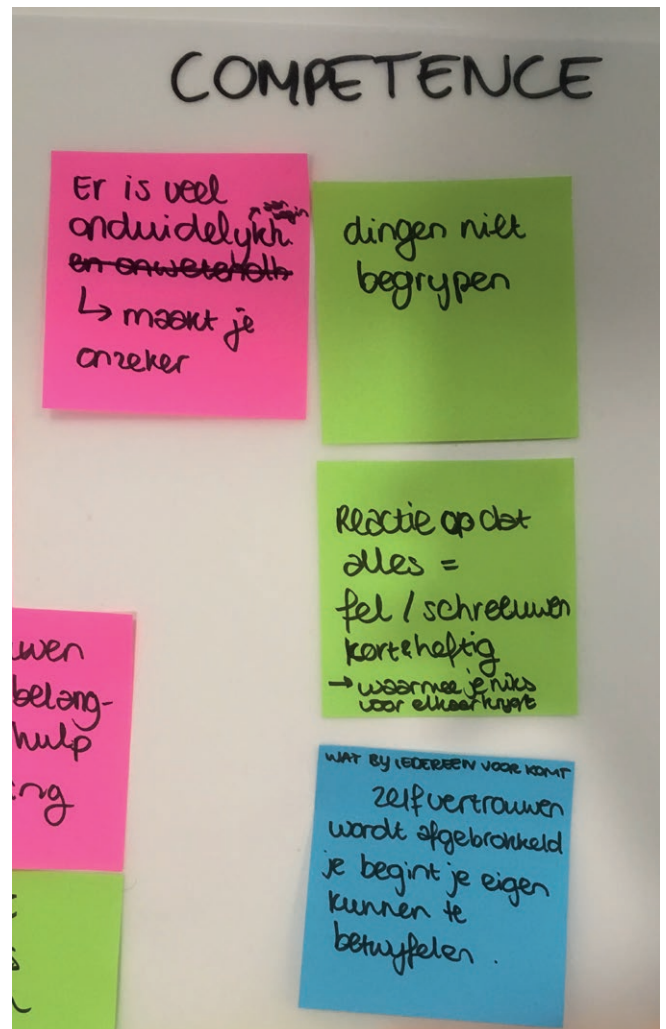 COMPETENCE
Er is veel
onduidelykh.
aan
begin
en onwetendh
↳ maakt je
onzeker
dingen niet
begrypen
Reactie op dat
alles =
fel / schreeuwen
kort & heftig
→ waarmee je niks
voor elkaar krygt
WAT BY IEDEREEN VOOR KOMT
zelfvertrouwen
wordt afgebrokkeld
je begint je eigen
kunnen te
betwyfelen.
wen
belang-
hulp
ng